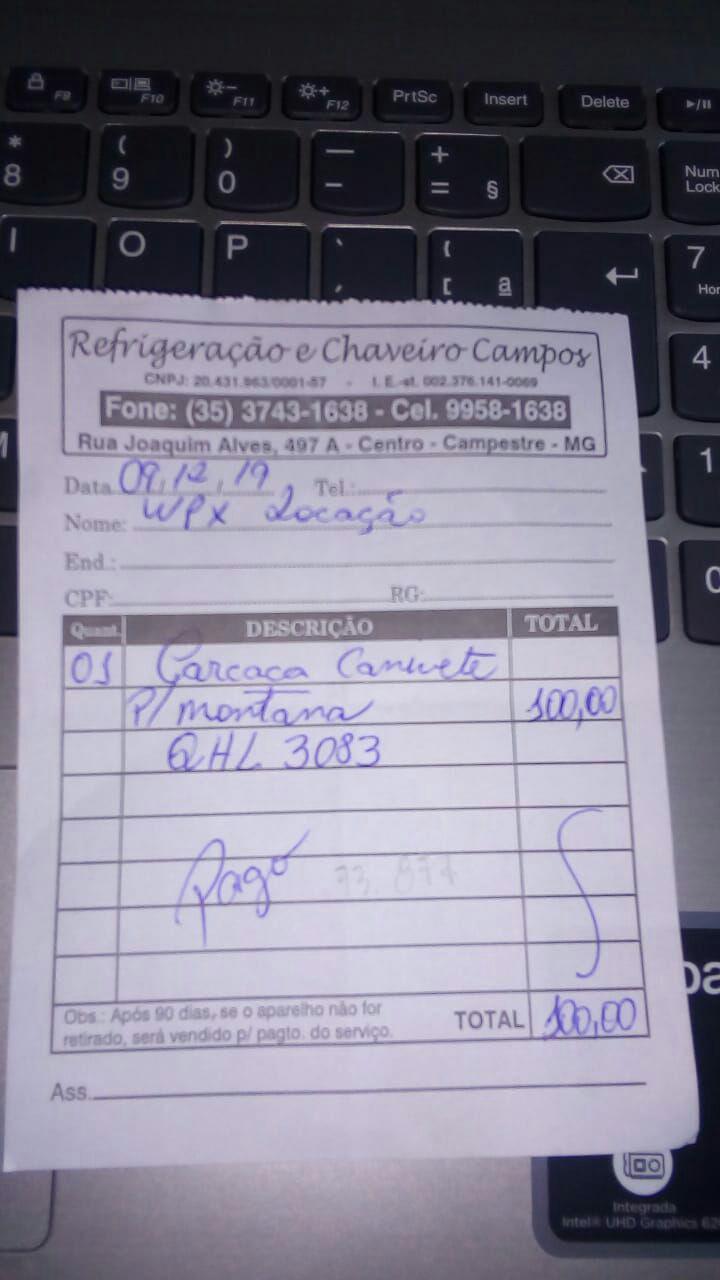 F9 F10 F11 F12 PrtSc Insert Delete
* 8 ( 9 ) 0 — - + = § Num Lock
I O P ` ´ { [ ª 7 Hor
4
1
0
Refrigeração e Chaveiro Campos
CNPJ: 20.431.963/0001-57 - I. E.-st. 002.376.141-0069
Fone: (35) 3743-1638 - Cel. 9958-1638
Rua Joaquim Alves, 497 A - Centro - Campestre - MG
Data 09,12,19 Tel.:
Nome: WPX Locação
End.:
CPF: RG:
Quant. DESCRIÇÃO TOTAL
01 Carcaça Canivete
P/ montana 100,00
QHL 3083
Pago
Obs.: Após 90 dias, se o aparelho não for
retirado, será vendido p/ pagto. do serviço. TOTAL 100,00
Ass.
Integrada
Intel® UHD Graphics 62